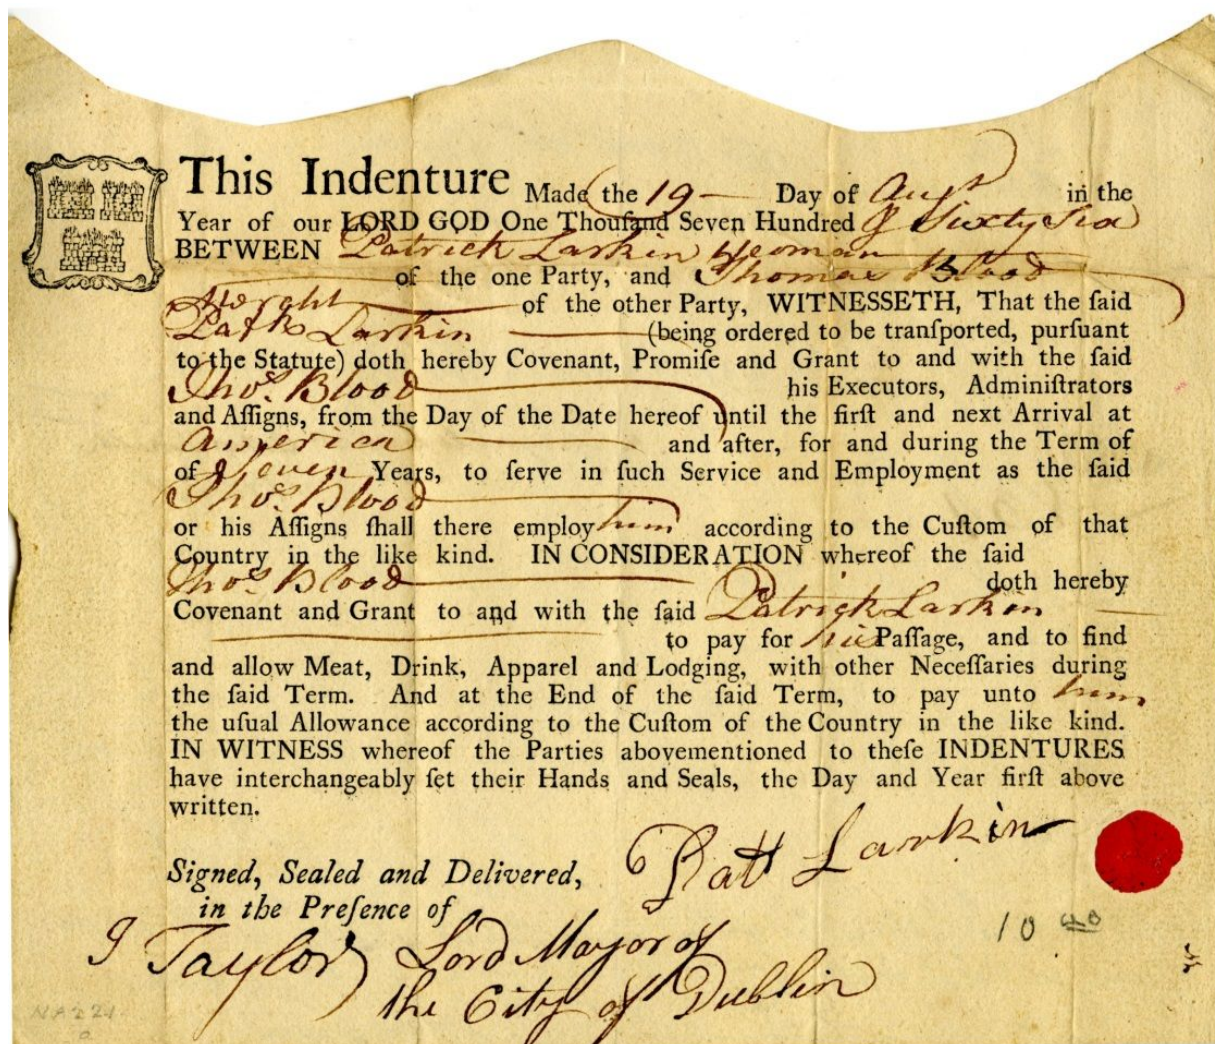 This Indenture Made the 19 Day of Augst in the
Year of our LORD GOD One Thouſand Seven Hundred & Sixty Six
BETWEEN Patrick Larkin Yeoman
of the one Party, and Thomas Blood
of the other Party, WITNESSETH, That the ſaid
Patk Larkin (being ordered to be tranſported, purſuant
to the Statute) doth hereby Covenant, Promiſe and Grant to and with the ſaid
Thos. Blood his Executors, Adminiſtrators
and Aſſigns, from the Day of the Date hereof until the firſt and next Arrival at
America and after, for and during the Term of
of Seven Years, to ſerve in ſuch Service and Employment as the ſaid
Thos. Blood
or his Aſſigns ſhall there employ him according to the Cuſtom of that
Country in the like kind. IN CONSIDERATION whereof the ſaid
Thos. Blood doth hereby
Covenant and Grant to and with the ſaid Patrick Larkin
to pay for his Paſſage, and to find
and allow Meat, Drink, Apparel and Lodging, with other Neceſſaries during
the ſaid Term. And at the End of the ſaid Term, to pay unto him
the uſual Allowance according to the Cuſtom of the Country in the like kind.
IN WITNESS whereof the Parties abovementioned to theſe INDENTURES
have interchangeably ſet their Hands and Seals, the Day and Year firſt above
written.
Patt Larkin
Signed, Sealed and Delivered,
in the Preſence of
J Taylor Lord Mayor of
the City of Dublin
10